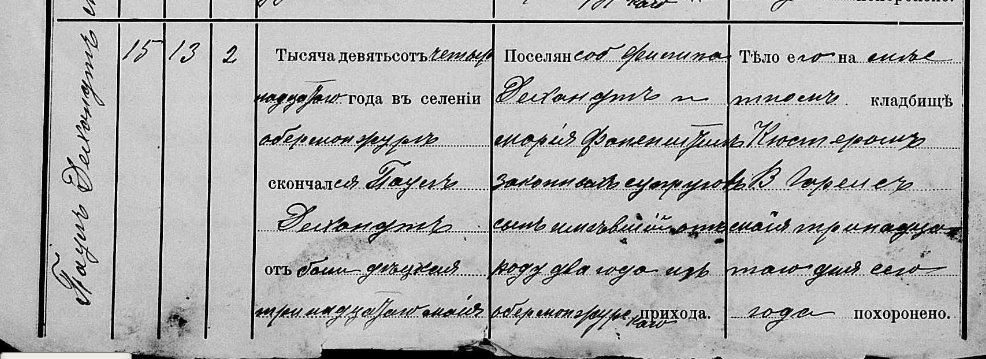 каго
Паулъ Декандтъ
15 13 2
Тысяча девятьсотъ четыр
надцатаго года въ селеніи
обермонжуръ
скончался Паулъ
Декандтъ
отъ боли дѣцкая
тринадцатаго мая
Поселян соб Филипа
Деканатъ и
Марія
законныхъ супруговъ
сынъ имѣвшій отъ
роду два года изъ
обермонжурскаго прихода.
Тѣло его на мѣс
тномъ кладбищѣ
Кюстеромъ
В
мая тринадца
таго дня сего
года похоронено.